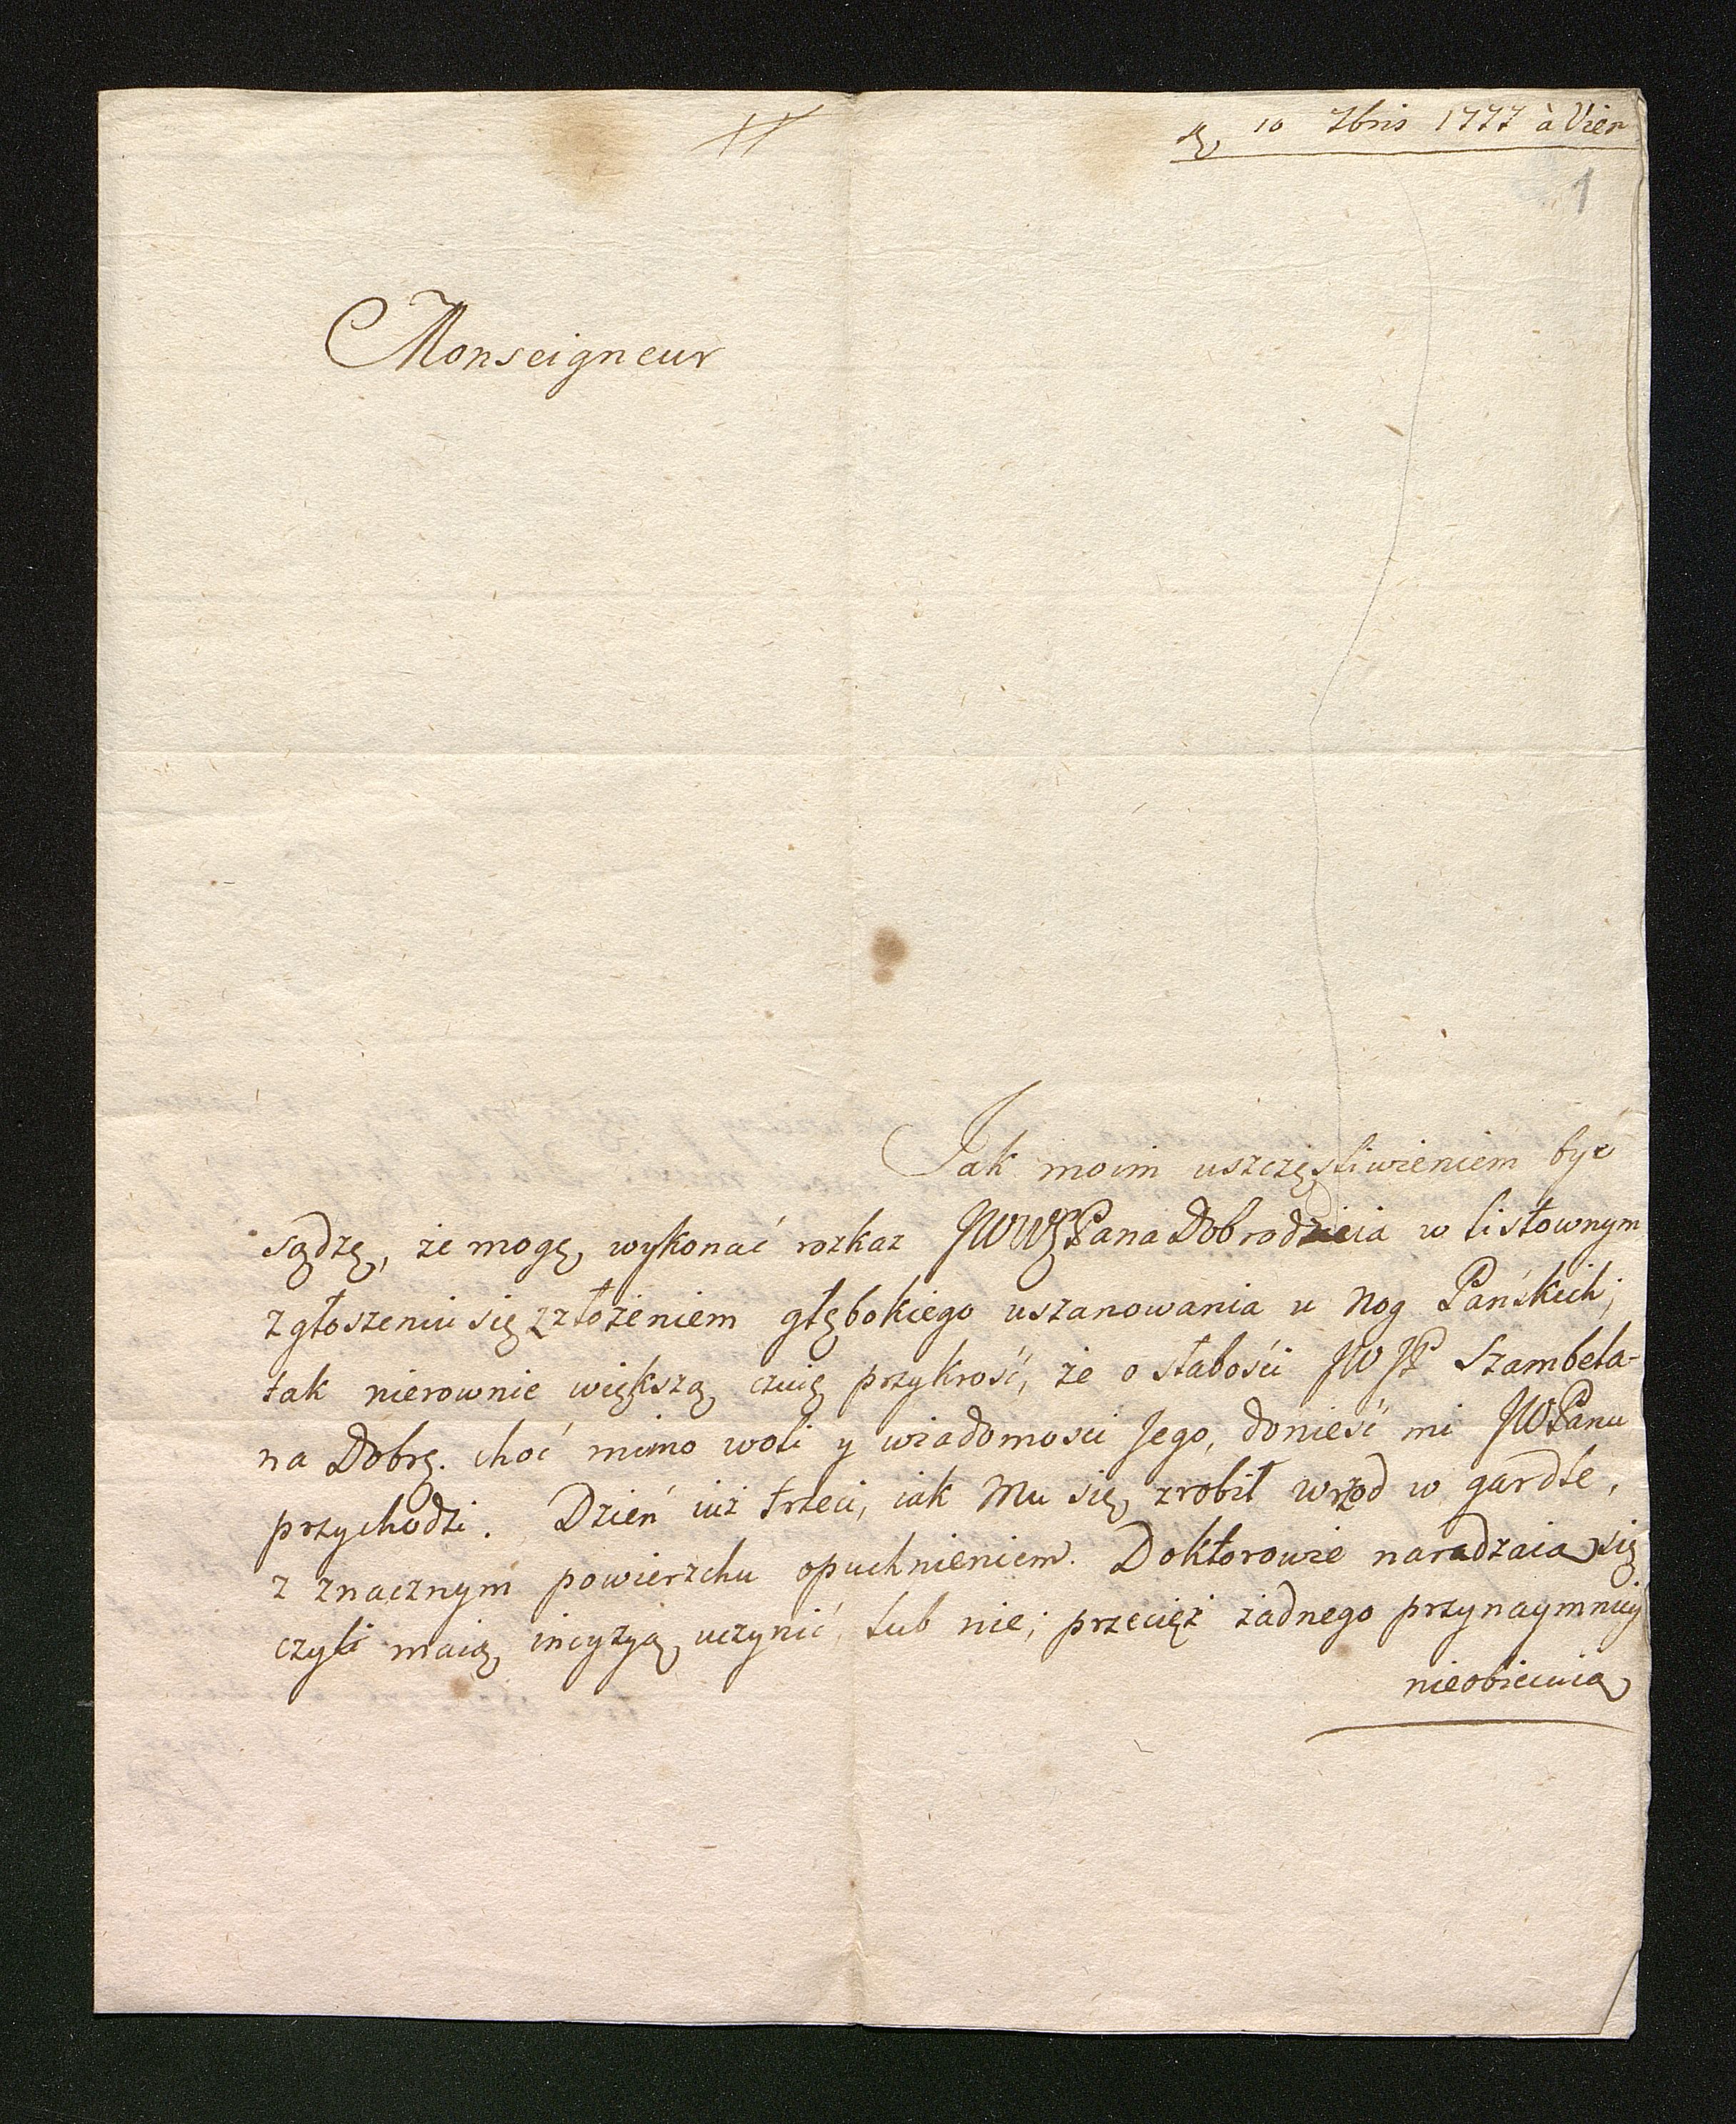 10 7bris 1777 à Vien
1
Monseigneur
Jak moim uszczęśliwieniem być
sądzę, że mogę wykonać rozkaz JWWPana Dobrodzieia w listownym
zgłoszeniu się z złożeniem głębokiego uszanowania u Nog Pańskich;
tak nierownie większą czuię przykrość, że o słabości JW JP Szambela-
na Dobrę. choć mimo woli y wiadomosci Jego, donieść mi JWPanu
przychodzi. Dzień iuż trzeci, iak Mu się zrobił wrzod w gardle,
z znacznym powierzchu opuchnieniem. Doktorowie naradzaią się
czyli maią incyzyą uczynić, lub nie; przecięż żadnego przynaymniey
nieobiecuią